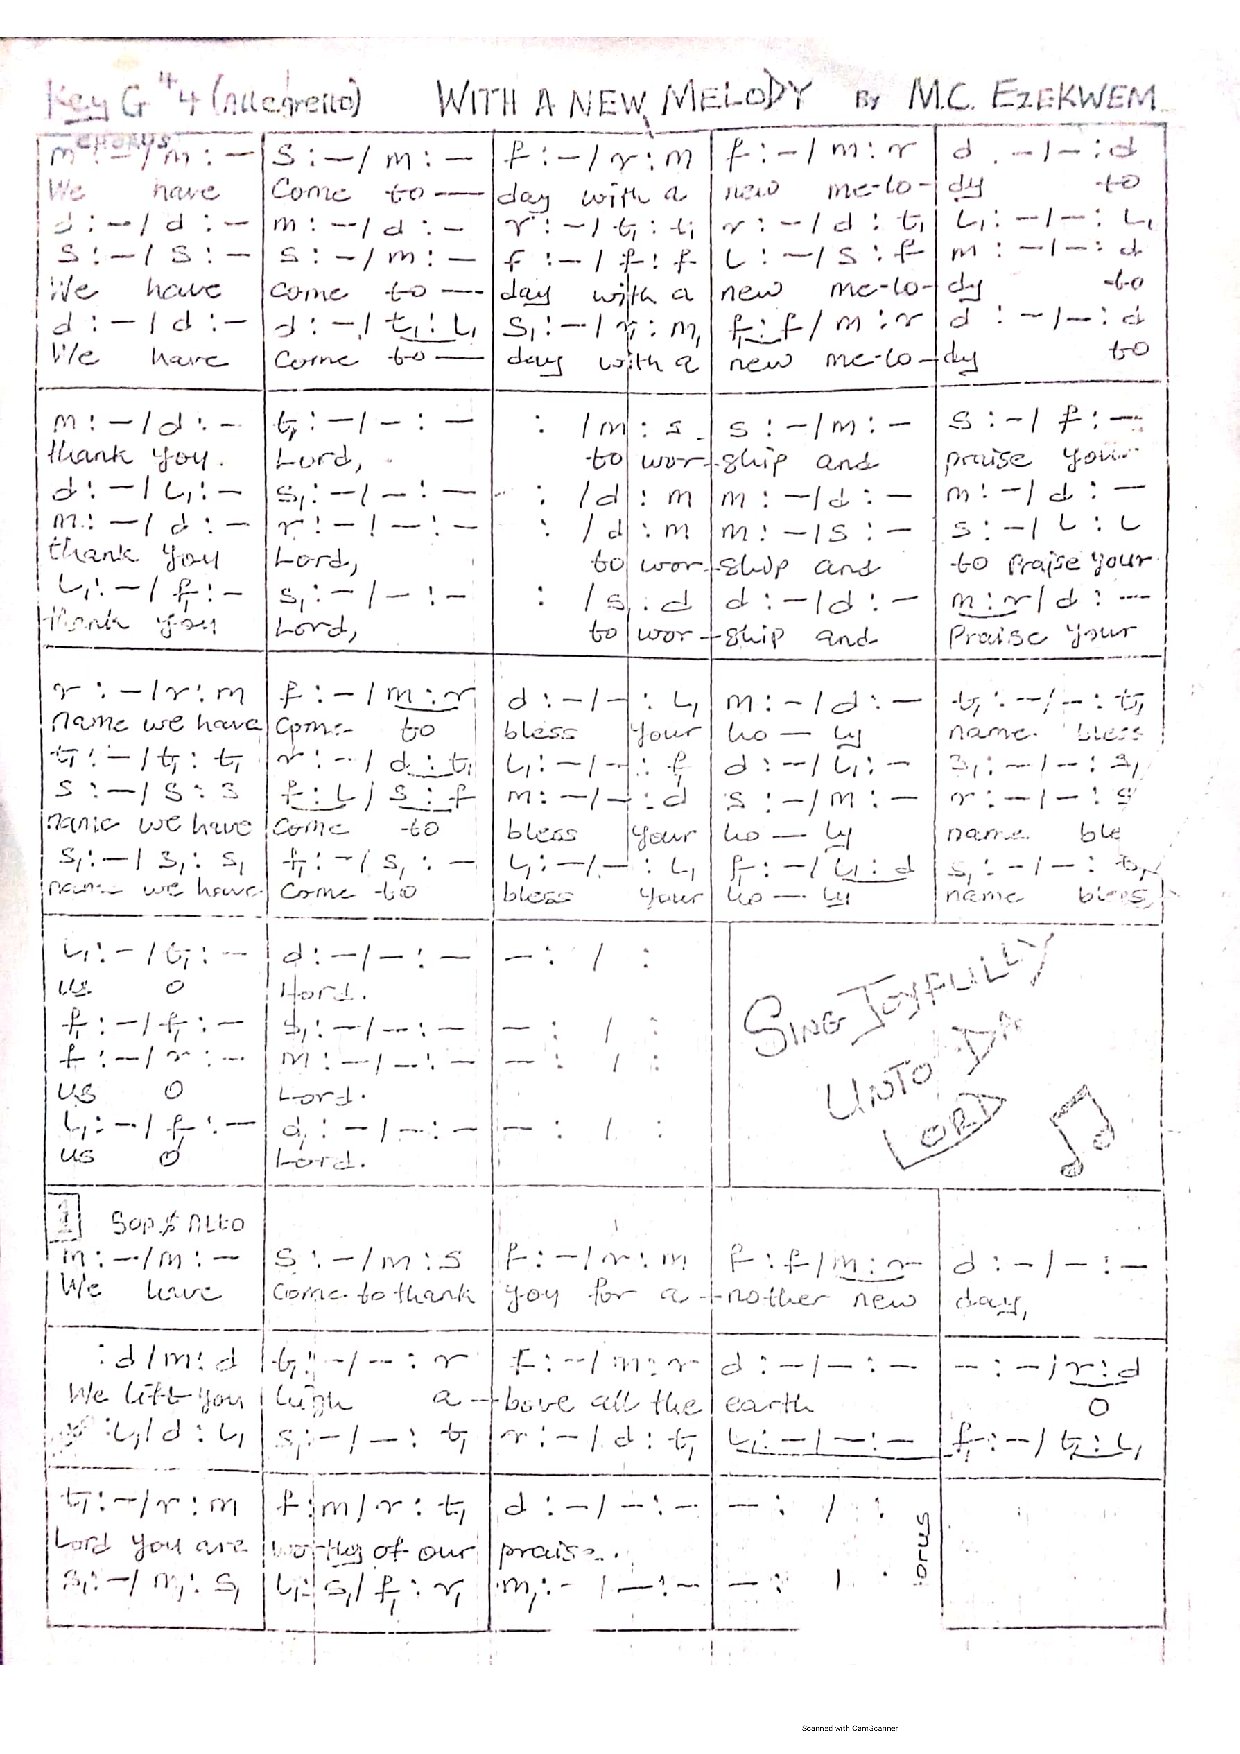 Key G 4/4 (Allegretto) WITH A NEW MELODY By M.C. EZEKWEM
CHORUS
m : – / m : – s : – / m : – f : – / r : m f : – / m : r d : – / – : d
We have Come to — day with a new me-lo- dy to
d : – / d : – m : – / d : – r : – / t₁ : t₁ r : – / d : t₁ L₁ : – / – : L₁
s : – / s : – s : – / m : – f : – / f : f L : – / s : f m : – / – : d
We have come to — day with a new me-lo- dy to
d : – / d : – d : – / t₁ : L₁ s₁ : – / r₁ : m₁ f₁ : f / m : r d : – / – : d
We have Come to — day with a new me-lo- dy to
m : – / d : – t₁ : – / – : – : / m : s s : – / m : – s : – / f : –
thank you. Lord, to wor-ship and praise your
d : – / L₁ : – s₁ : – / – : – : / d : m m : – / d : – m : – / d : –
m : – / d : – r : – / – : – : / d : m m : – / s : – s : – / L : L
thank you Lord, to wor-ship and to Praise your
L₁ : – / f₁ : – s₁ : – / – : – : / s₁ : d d : – / d : – m : r / d : –
thank you Lord, to wor-ship and Praise your
r : – / r : m f : – / m : r d : – / – : L₁ m : – / d : – t₁ : – / – : t₁
name we have Come to bless your ho — ly name. bless
t₁ : – / t₁ : t₁ r : – / d : t₁ L₁ : – / – : f₁ d : – / L₁ : – s₁ : – / – : s₁
s : – / s : s f : L / s : f m : – / – : d s : – / m : – r : – / – : s
name we have Come to bless your ho — ly name ble
s₁ : – / s₁ : s₁ f₁ : – / s₁ : – L₁ : – / – : L₁ f₁ : – / L₁ : d s₁ : – / – : t₁
name we have Come to bless your ho — ly name bless
L₁ : – / t₁ : – d : – / – : – – : / :
us O Lord.
f₁ : – / f₁ : – s₁ : – / – : – – : / :
f : – / r : – m : – / – : – – : / :
us O Lord.
L₁ : – / f₁ : – d₁ : – / – : – – : / :
us O Lord.
SING JOYFULLY
UNTO DA
LORD
1 SOP & ALTO
m : – / m : – s : – / m : s f : – / r : m f : f / m : r d : – / – : –
We have Come to thank you for a-nother new day,
: d / m : d t₁ : – / – : r f : – / m : r d : – / – : – – : – / r : d
We lift you high a-bove all the earth O
: L₁ / d : L₁ s₁ : – / – : t₁ r : – / d : t₁ L₁ : – / – : – f₁ : – / t₁ : L₁
t₁ : – / r : m f : m / r : t₁ d : – / – : – – : / :
Lord you are worthy of our praise.
s₁ : – / m₁ : s₁ L₁ : s₁ / f₁ : r₁ m₁ : – / – : – – : / :
Scanned with CamScanner